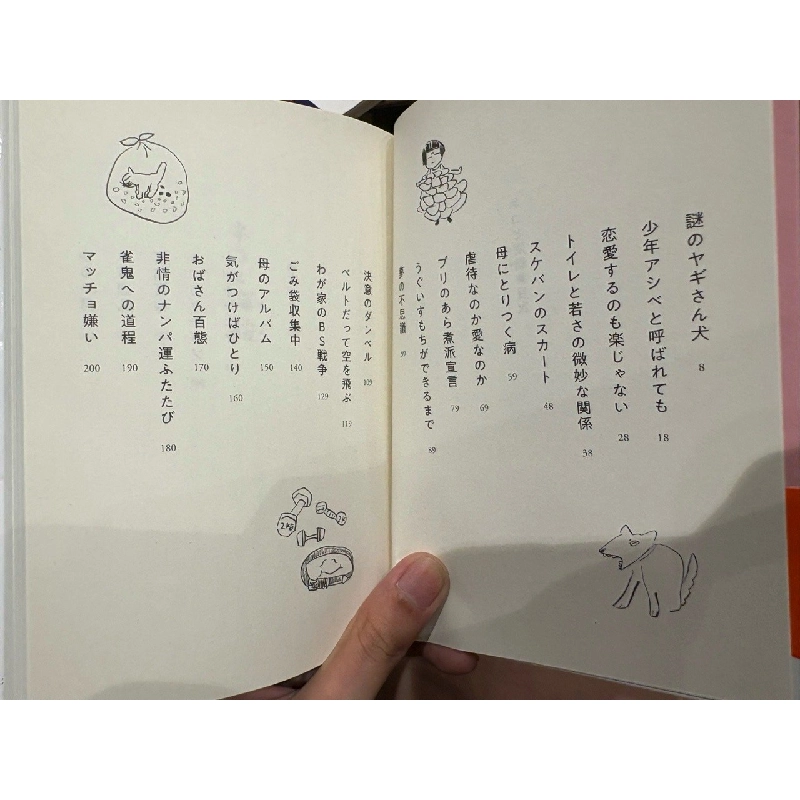 謎のヤギさん犬 8
少年アシベと呼ばれても 18
恋愛するのも楽じゃない 28
トイレと若さの微妙な関係 38
スケバンのスカート 48
母にとりつく病 59
虐待なのか愛なのか 69
ブリのあら煮派宣言 79
うぐいすもちができるまで 89
夢の不思議 99
決意のダンベル 109
ベルトだって空を飛ぶ 119
わが家のBS戦争 129
ごみ袋収集中 140
母のアルバム 150
気がつけばひとり 160
おばさん百態 170
非情のナンパ運ふたたび 180
雀鬼への道程 190
マッチョ嫌い 200
2KG